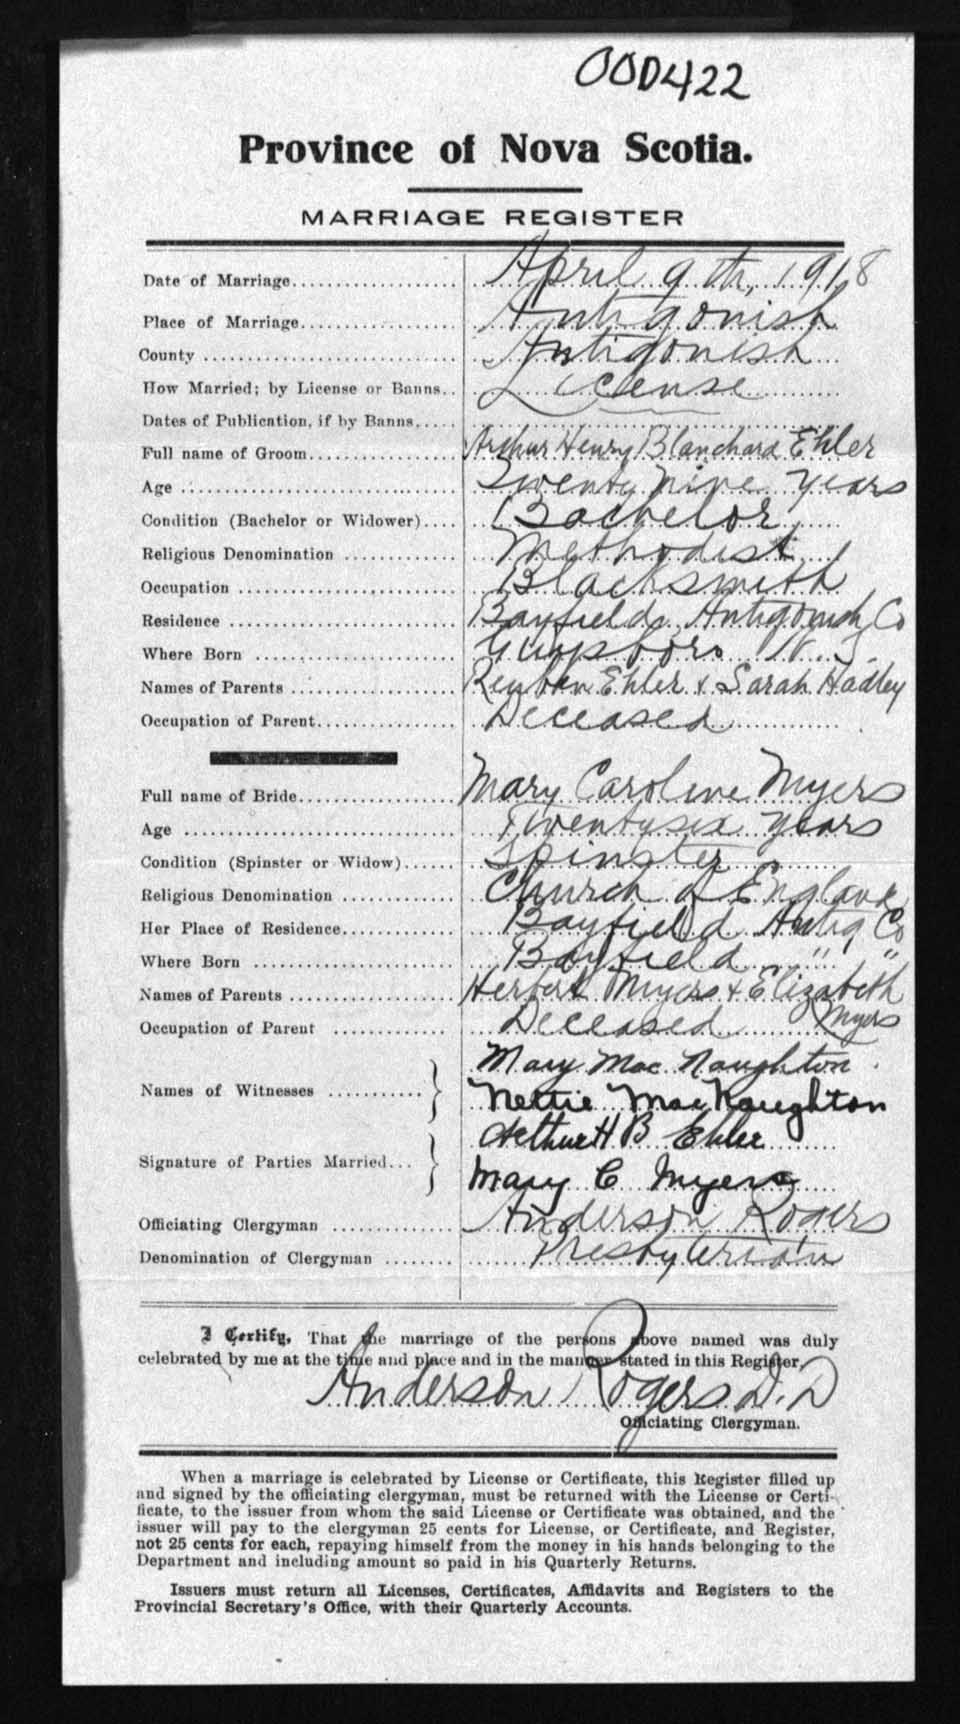 OOD422
Province of Nova Scotia.
MARRIAGE REGISTER
Date of Marriage April 9th, 1918
Place of Marriage Antigonish
County Antigonish
How Married; by License or Banns License
Dates of Publication, if by Banns
Full name of Groom Arthur Henry Blanchard Ehler
Age Twenty Nine years
Condition (Bachelor or Widower) Bachelor
Religious Denomination Methodist
Occupation Blacksmith
Residence Bayfield, Antigonish Co
Where Born Guysboro N.S.
Names of Parents Reuben Ehler & Sarah Hadley
Occupation of Parent Deceased
Full name of Bride Mary Caroline Myers
Age Twentysix years
Condition (Spinster or Widow) Spinster
Religious Denomination Church of England
Her Place of Residence Bayfield Antig Co
Where Born Bayfield " "
Names of Parents Herbert Myers & Elizabeth Myers
Occupation of Parent Deceased
Names of Witnesses Mary MacNaughton
Nettie MacNaughton
Signature of Parties Married Arthur H B Ehler
Mary C Myers
Officiating Clergyman Anderson Rogers
Denomination of Clergyman Presbyterian
I Certify, That the marriage of the persons above named was duly
celebrated by me at the time and place and in the manner stated in this Register,
Anderson Rogers D.D
Officiating Clergyman.
When a marriage is celebrated by License or Certificate, this Register filled up
and signed by the officiating clergyman, must be returned with the License or Certi-
ficate, to the issuer from whom the said License or Certificate was obtained, and the
issuer will pay to the clergyman 25 cents for License, or Certificate, and Register,
not 25 cents for each, repaying himself from the money in his hands belonging to the
Department and including amount so paid in his Quarterly Returns.
Issuers must return all Licenses, Certificates, Affidavits and Registers to the
Provincial Secretary's Office, with their Quarterly Accounts.